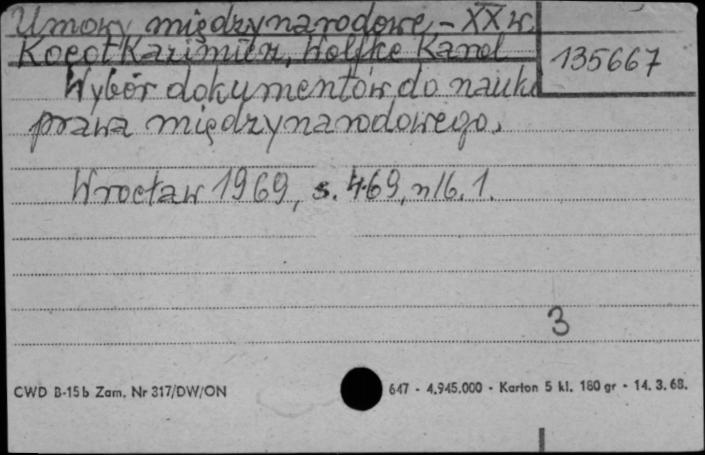 Umowy międzynarodowe - XX w.
Kocot Kazimierz, Wolfke Karol
135667
Wybór dokumentów do nauki
prawa międzynarodowego.
Wrocław 1969, s. 469, nlb. 1.
3
CWD B-15b Zam. Nr 317/DW/ON
647 - 4.945.000 - Karton 5 kl. 180 gr - 14. 3. 68.